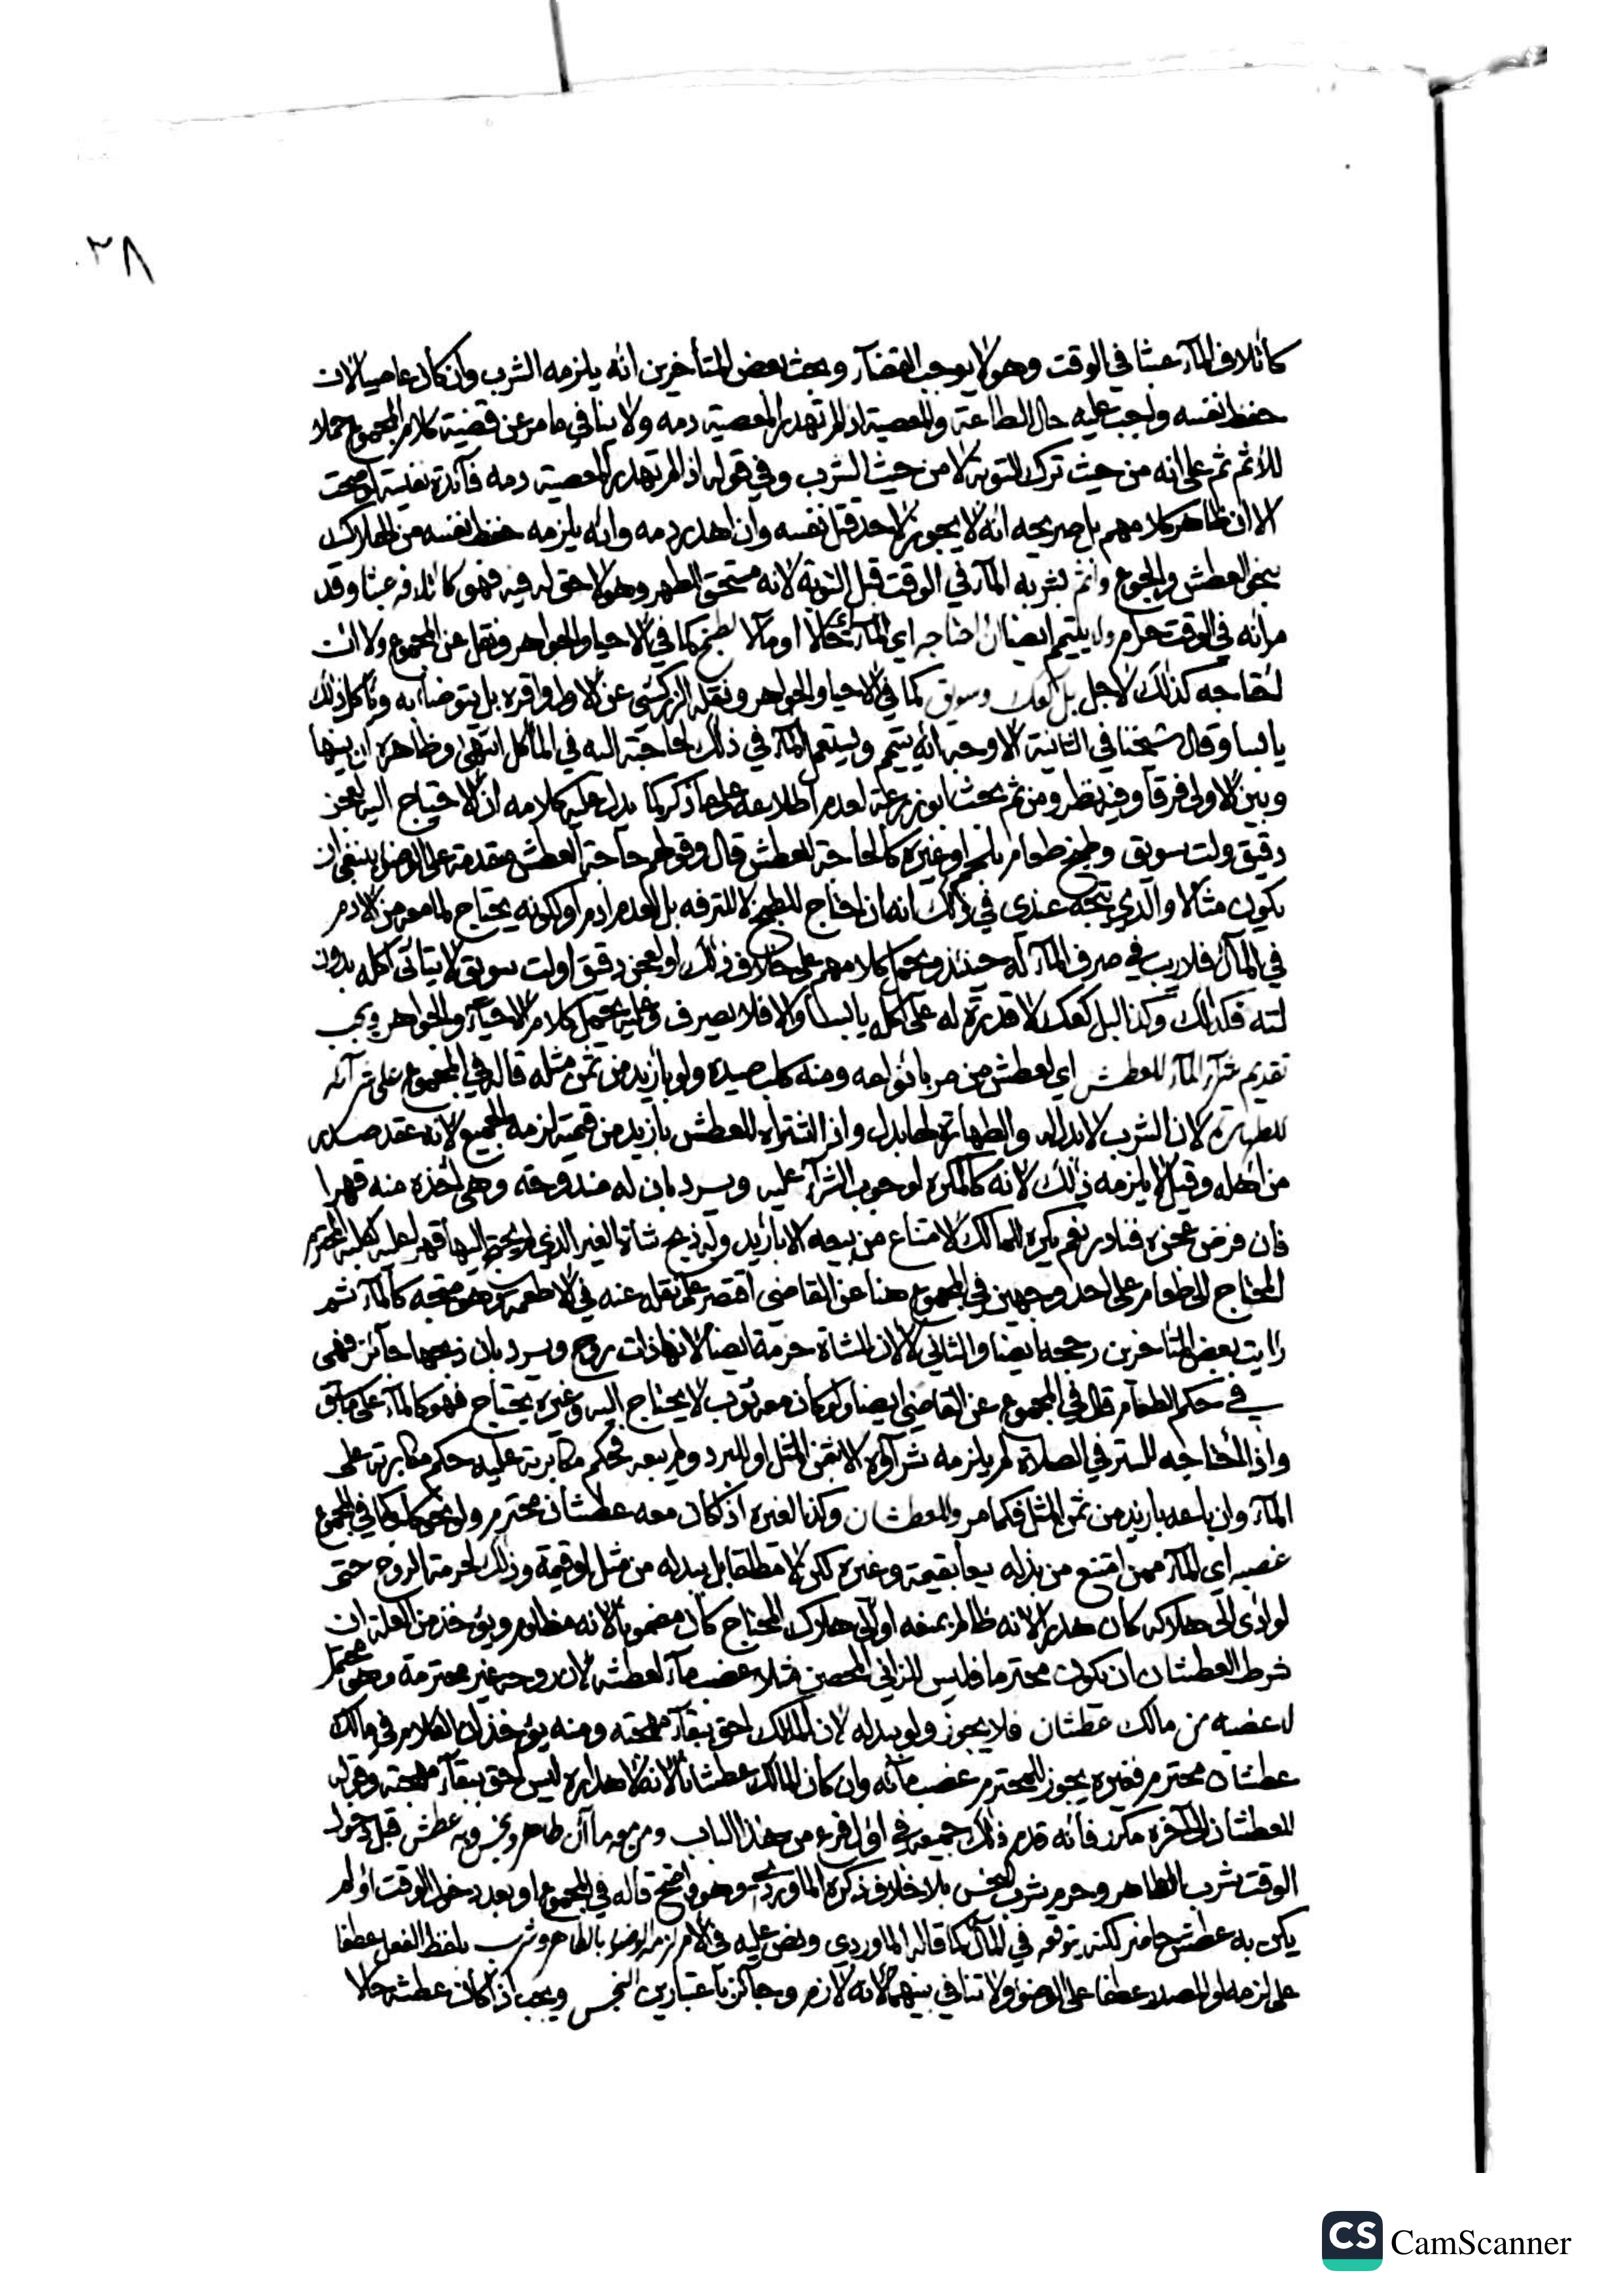 ٣٨
كاتلاف المآء عبثا في الوقت وهو لا يوجب القضآء وبحث بعض المتأخرين انه يلزمه الشرب وان كان عاصيا لان
حفظ نفسه واجب عليه حال الطاعة والمعصية اذ لم تهدر المعصية دمه ولا ينافي ما مر عن قضية كلام المجموع حملا
للاثم ثم على انه من حيث ترك التوبة لا من حيث الشرب وفي قوله اذ لم تهدر المعصية دمه فآئدة نفيسة لو صحت
الا ان ظاهر كلامهم بل صريحه انه لا يجوز لاحد قتل نفسه وان اهدر دمه وانه يلزمه حفظ نفسه من الهلاك
بنحو العطش والجوع واثم بشربه المآء في الوقت قبل التوبة لانه مستحق الطهر وهو لا حق له فيه فهو كاتلافه عبثا وقد
مر انه في الوقت حرام و يتيمم ايضا ان احتاجه اي المآء حالا او مآلا لطبخ كما في الاحيا والجواهر ونقل عن المجموع ولا ان
احتاجه كذلك لاجل بل كعك وسويق كما في الاحيا والجواهر ونقله الزركشي عن الاول واقره بل يتوضأ به ويأكل ذلك
يابسا وقال شيخنا في الثانية الاوجه انه يتيمم ويستعمل المآء في ذلك لحاجته اليه في المأكل انتهى وظاهره ان بينها
وبين الاولى فرقا وفيه نظر ومن ثم بحث ابو زرعة لعدم اطلاعه على ما ذكر كما يدل عليه كلامه ان الاحتياج اليه لعجن
دقيق ولت سويق وطبخ طعام بلحم او غيره كالحاجة للعطش قال وقولهم حاجة العطش مقدمة على الوضوء ينبغي ان
يكون مثالا والذي يتجه عندي في ذلك انه ان احتاج للطبخ لا للترفه بل لعدم ادم او لكونه يحتاج لما معه من الادم
في المآل فلا ريب في صرف المآء له حينئذ ويحمل كلامهم على خلاف ذلك او لعجن دقيق او لت سويق لا يتأتى اكله بدون
لته فكذلك وكذا لبل كعك لا قدرة له على اكله يابسا والا فلا يصرف وعليه يحمل كلام الاحيآء والجواهر ويجب
تقديم شرآء المآء للعطش اي لعطش من مر بانواعه ومنه كلب صيده ولو بازيد من ثمن مثله قاله في المجموع على شرآئه
للطهارة لان الشرب لا بدل له والطهارة لها بدل واذا اشتراه للعطش بازيد من قيمته لزمه الجميع لانه عقد صدر
من اهله وقيل لا يلزمه ذلك لانه كالمكره لوجوب الشرآء عليه ويرد بان له مندوحة وهي اخذه منه قهرا
فان فرض عجزه فنادر نعم يكره للمالك الامتناع من بيعه الا بازيد وله ذبح شاة الغير الذي لم يحتج اليها قهرا عليه لكلبه المحترم
المحتاج الى طعام على احد وجهين في المجموع هنا عن القاضي اقتصر على نقله عنه في الاطعمة وهو متجه كالمآء ثم
رايت بعض المتأخرين رجحه ايضا والثاني لا لان للشاة حرمة ايضا لانها ذات روح ويرد بان ذبحها جآئز فهي
في حكم الطعام قال في المجموع عن القاضي ايضا ولو كان معه ثوب لا يحتاج اليه وغيره يحتاج فهو كالمآء على ما سبق
واذا احتاجه للستر في الصلاة لم يلزمه شرآؤه الا بثمن المثل او للبرد ولم يبعه فحكم مكابرته عليه حكم مكابرته على
المآء وان باعه بازيد من ثمن المثل فكما مر وللعطشان وكذا لغيره اذا كان معه عطشان محترم ولو نحو كلب كما في المجموع
غصبه اي المآء ممن امتنع من بذله بيعا بقيمته وغيره لكن لا مطلقا بل ببدله من مثل او قيمة وذلك لحرمة الروح حتى
لو ادى الى هلاكه كان هدرا لانه ظالم بمنعه او الى هلاك المحتاج كان مضمونا لانه مظلوم ويؤخذ من العلة ان
شرط العطشان ان يكون محترما فليس للزاني المحصن مثلا غصب مآء لعطشه لان روحه غير محترمة وهو محتمل
لا غصبه من مالك عطشان فلا يجوز ولو ببدله لان المالك احق ببقآء مهجته ومنه يؤخذ ان الكلام في مالك
عطشان محترم فغيره يجوز للمحترم غصب مآئه وان كان المالك عطشانا لانه لاهداره ليس احق ببقآء مهجته وقوله
للعطشان الى آخره مكرر فانه قدم ذلك جميعه في اول فرع من هذا الباب ومن معه ماآن طاهر ونجس وبه عطش قبل دخول
الوقت شرب الطاهر وحرم شرب النجس بلا خلاف ذكره الماوردي وهو واضح قاله في المجموع او بعد دخول الوقت او لم
يكن به عطش حاضر لكنه يتوقعه في المآل كما قاله الماوردي ونص عليه في الام لزمه الوضوء بالطاهر وشرب بلفظ الفعل عطفا
على لزمه او المصدر عطفا على الوضوء ولا تنافي بينهما لانه لازم وجآئز باعتبارين النجس ويجب اذا كان عطشه حالا
CS CamScanner